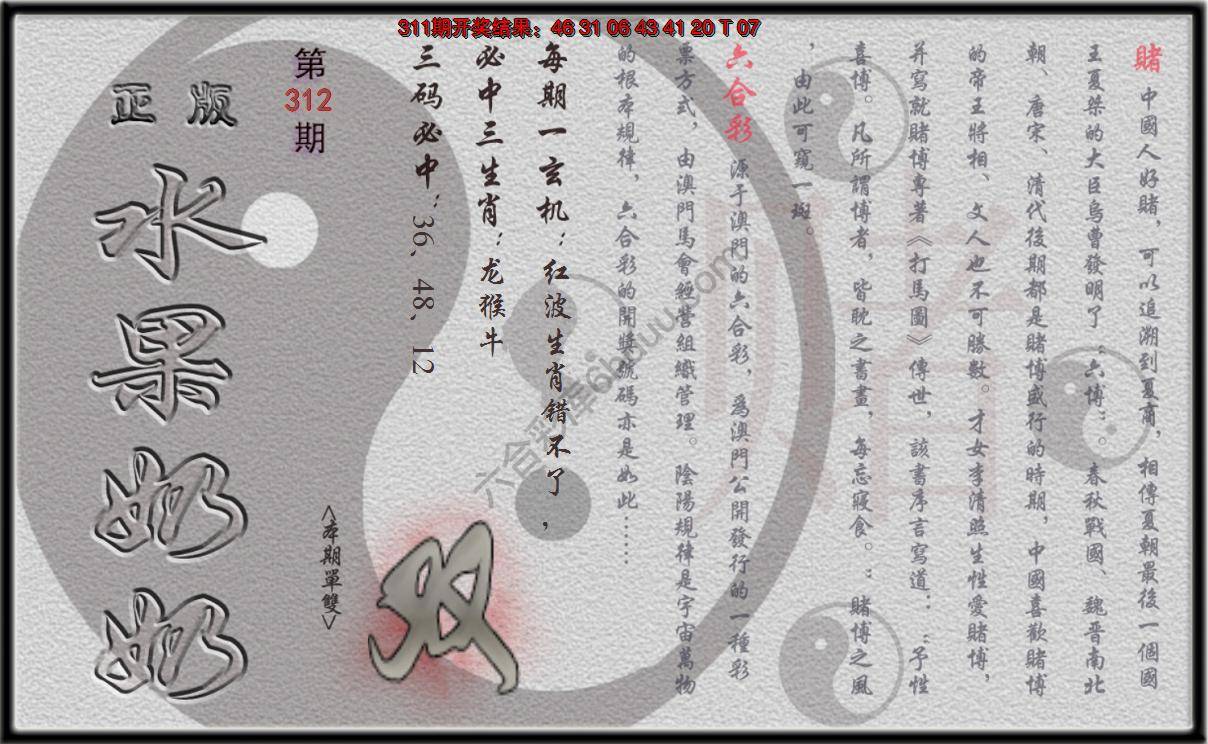 311期开奖结果：46 31 06 43 41 20 T 07
賭 中國人好賭，可以追溯到夏商，相傳夏朝最後一個國
王夏桀的大臣烏曹發明了“六博”。春秋戰國、魏晉南北
朝、唐宋、清代後期都是賭博盛行的時期，中國喜歡賭博
的帝王將相、文人也不可勝數。才女李清照生性愛賭博，
并寫就賭博專著《打馬圖》傳世，該書序言寫道：“予性
喜博。凡所謂博者，皆耽之書畫，每忘寢食。：賭博之風
，由此可窺一斑。
六合彩 源于澳門的六合彩，為澳門公開發行的一種彩
票方式，由澳門馬會經營組織管理。陰陽規律是宇宙萬物
的根本規律，六合彩的開獎號碼亦是如此……
每期一玄机：红波生肖错不了，
必中三生肖：龙猴牛
三码必中：36、48、12
第
312
期
<本期單雙>
双
正版
水果奶奶
賭
六合彩库6hduu.com